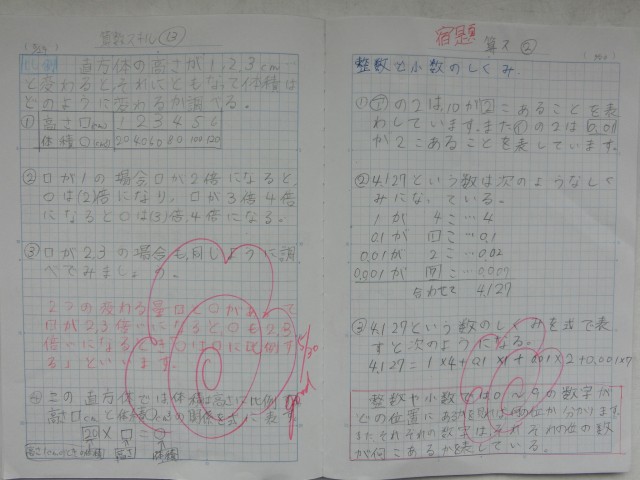 算数スキル ⑬
直方体の高さが1,2,3cm…
と変わると、それにともなって体積は
どのように変わるか調べる。
① 高さ□(cm) 1 2 3 4 5 6
体積○(cm3) 20 40 60 80 100 120
②□が1の場合□が2倍になると、
○は(2)倍になり、□が3倍、4倍
になると○は(3)倍、4倍になる。
③□が2,3の場合も、同じように調
べてみましょう。
2つの変わる量□と○があって
□が2,3倍になると○も2,3
倍になると○は□に比例す
る」といいます。
5/30
good
④この直方体では体積は高さに比例
高さ□cmと体積○cm3の関係を式に表
20×□=○
高さ 体積
宿題
算ス ②
整数と小数のしくみ
の2は10が2こあることを表
わしています。また の2は0.01
が2こあることを表しています。
②4.127という数は次のようなしく
みになっている。
1が 4こ…4
0.1が 1こ…0.1
0.01が 2こ…0.02
0.001が 7こ…0.007
合わせて 4.127
③4.127という数のしくみを式で表
すと次のようになる。
4.127=1×4+0.1×1+0.01×2+0.001×7
整数や小数では0〜9の数字が
どの位置にあるか 位が分かります。
またそれぞれの数字はそれぞれの位の数
が何こあるかを表している。